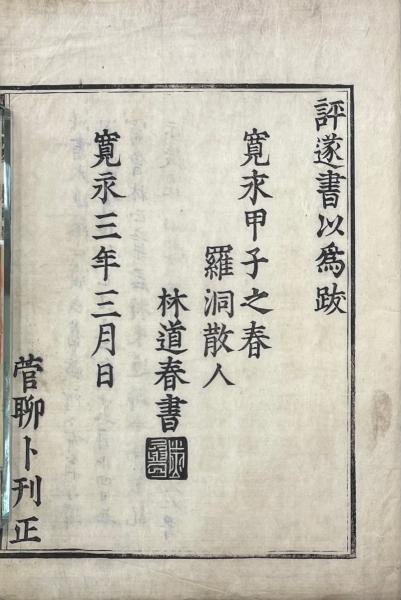 評遂書以為跋
寛永甲子之春
羅洞散人
林道春書
寛永三年三月日
菅聊卜刊正